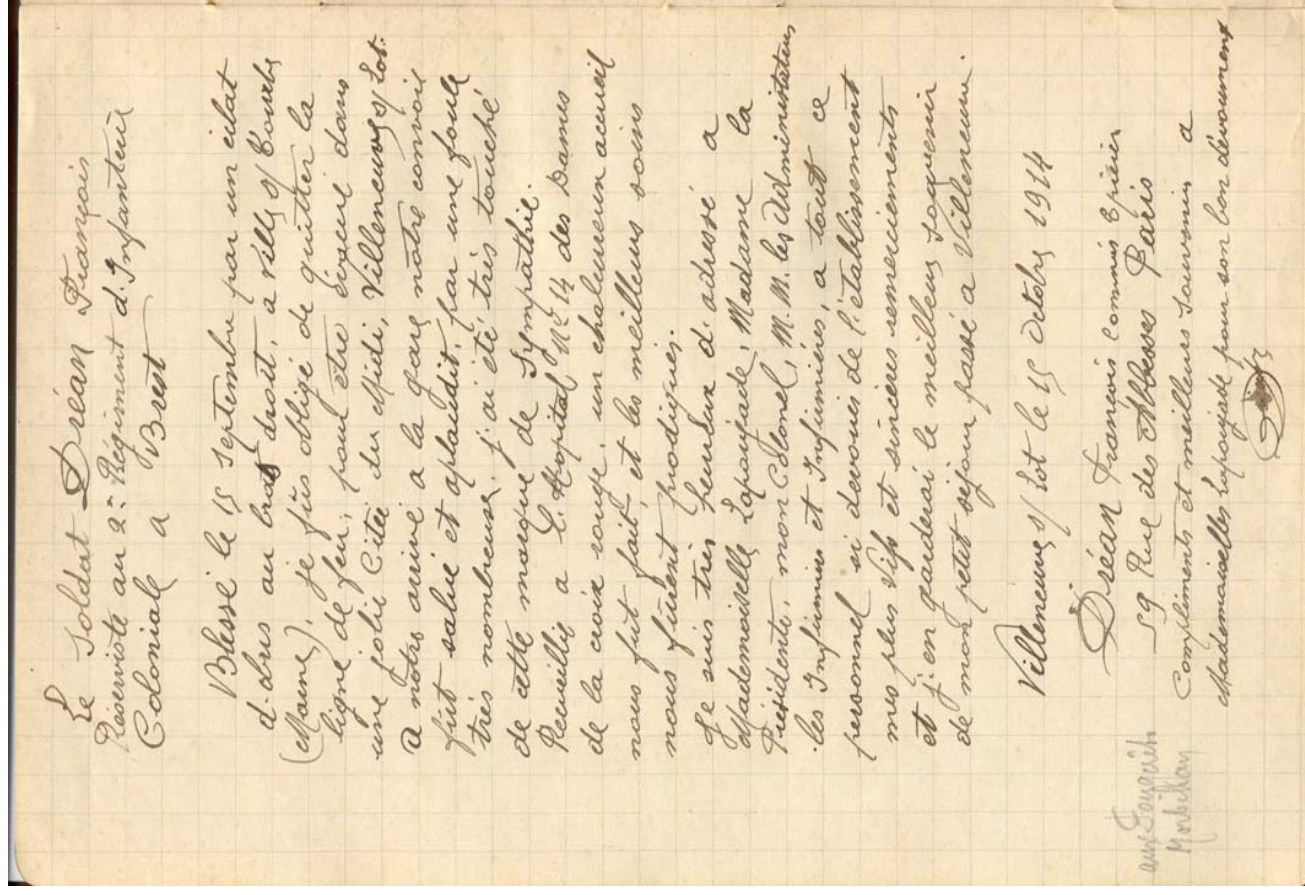 Le Soldat Dréan François
Réserviste au 2e Régiment d'Infanterie
Coloniale a Brest
Blessé le 15 Septembre par un eclat
d'obus au bras droit, a Ville s/ Tourbe
(Marne), je fus obligé de quitter la
ligne de feu, pour etre évacué dans
une jolie Citée du Midi, Villeneuve s/ Lot.
a notre arrivé a la gare notre convoi
fut salué et aplaudit, par une foule
très nombreuse, j'ai été très touché
de cette marque de Sympathie.
Recueillis a l'Hopital No 14 des Dames
de la croix rouge, un chaleureux accueil
nous fut fait, et les meilleurs soins
nous furent prodigués.
Je suis très heureux d'adressé a
Mademoiselle Lapoujade, Madame la
Présidente, mon Colonel, M.M. les Administrateurs
les Infirmiers et Infirmières, a tout ce
personnel si devoués de l'établissement
mes plus vifs et sincères remerciements
et j'en garderai le meilleur souvenir
de mon petit séjour passé a Villeneuve.
Villeneuve s/ Lot le 15 Octobre 1914
Dréan François Commis Epicier
59 Rue des Abbesses Paris
Compliments et meilleurs souvenirs a
Mademoiselle Lapoujade pour son bon dévouement
Morbihan